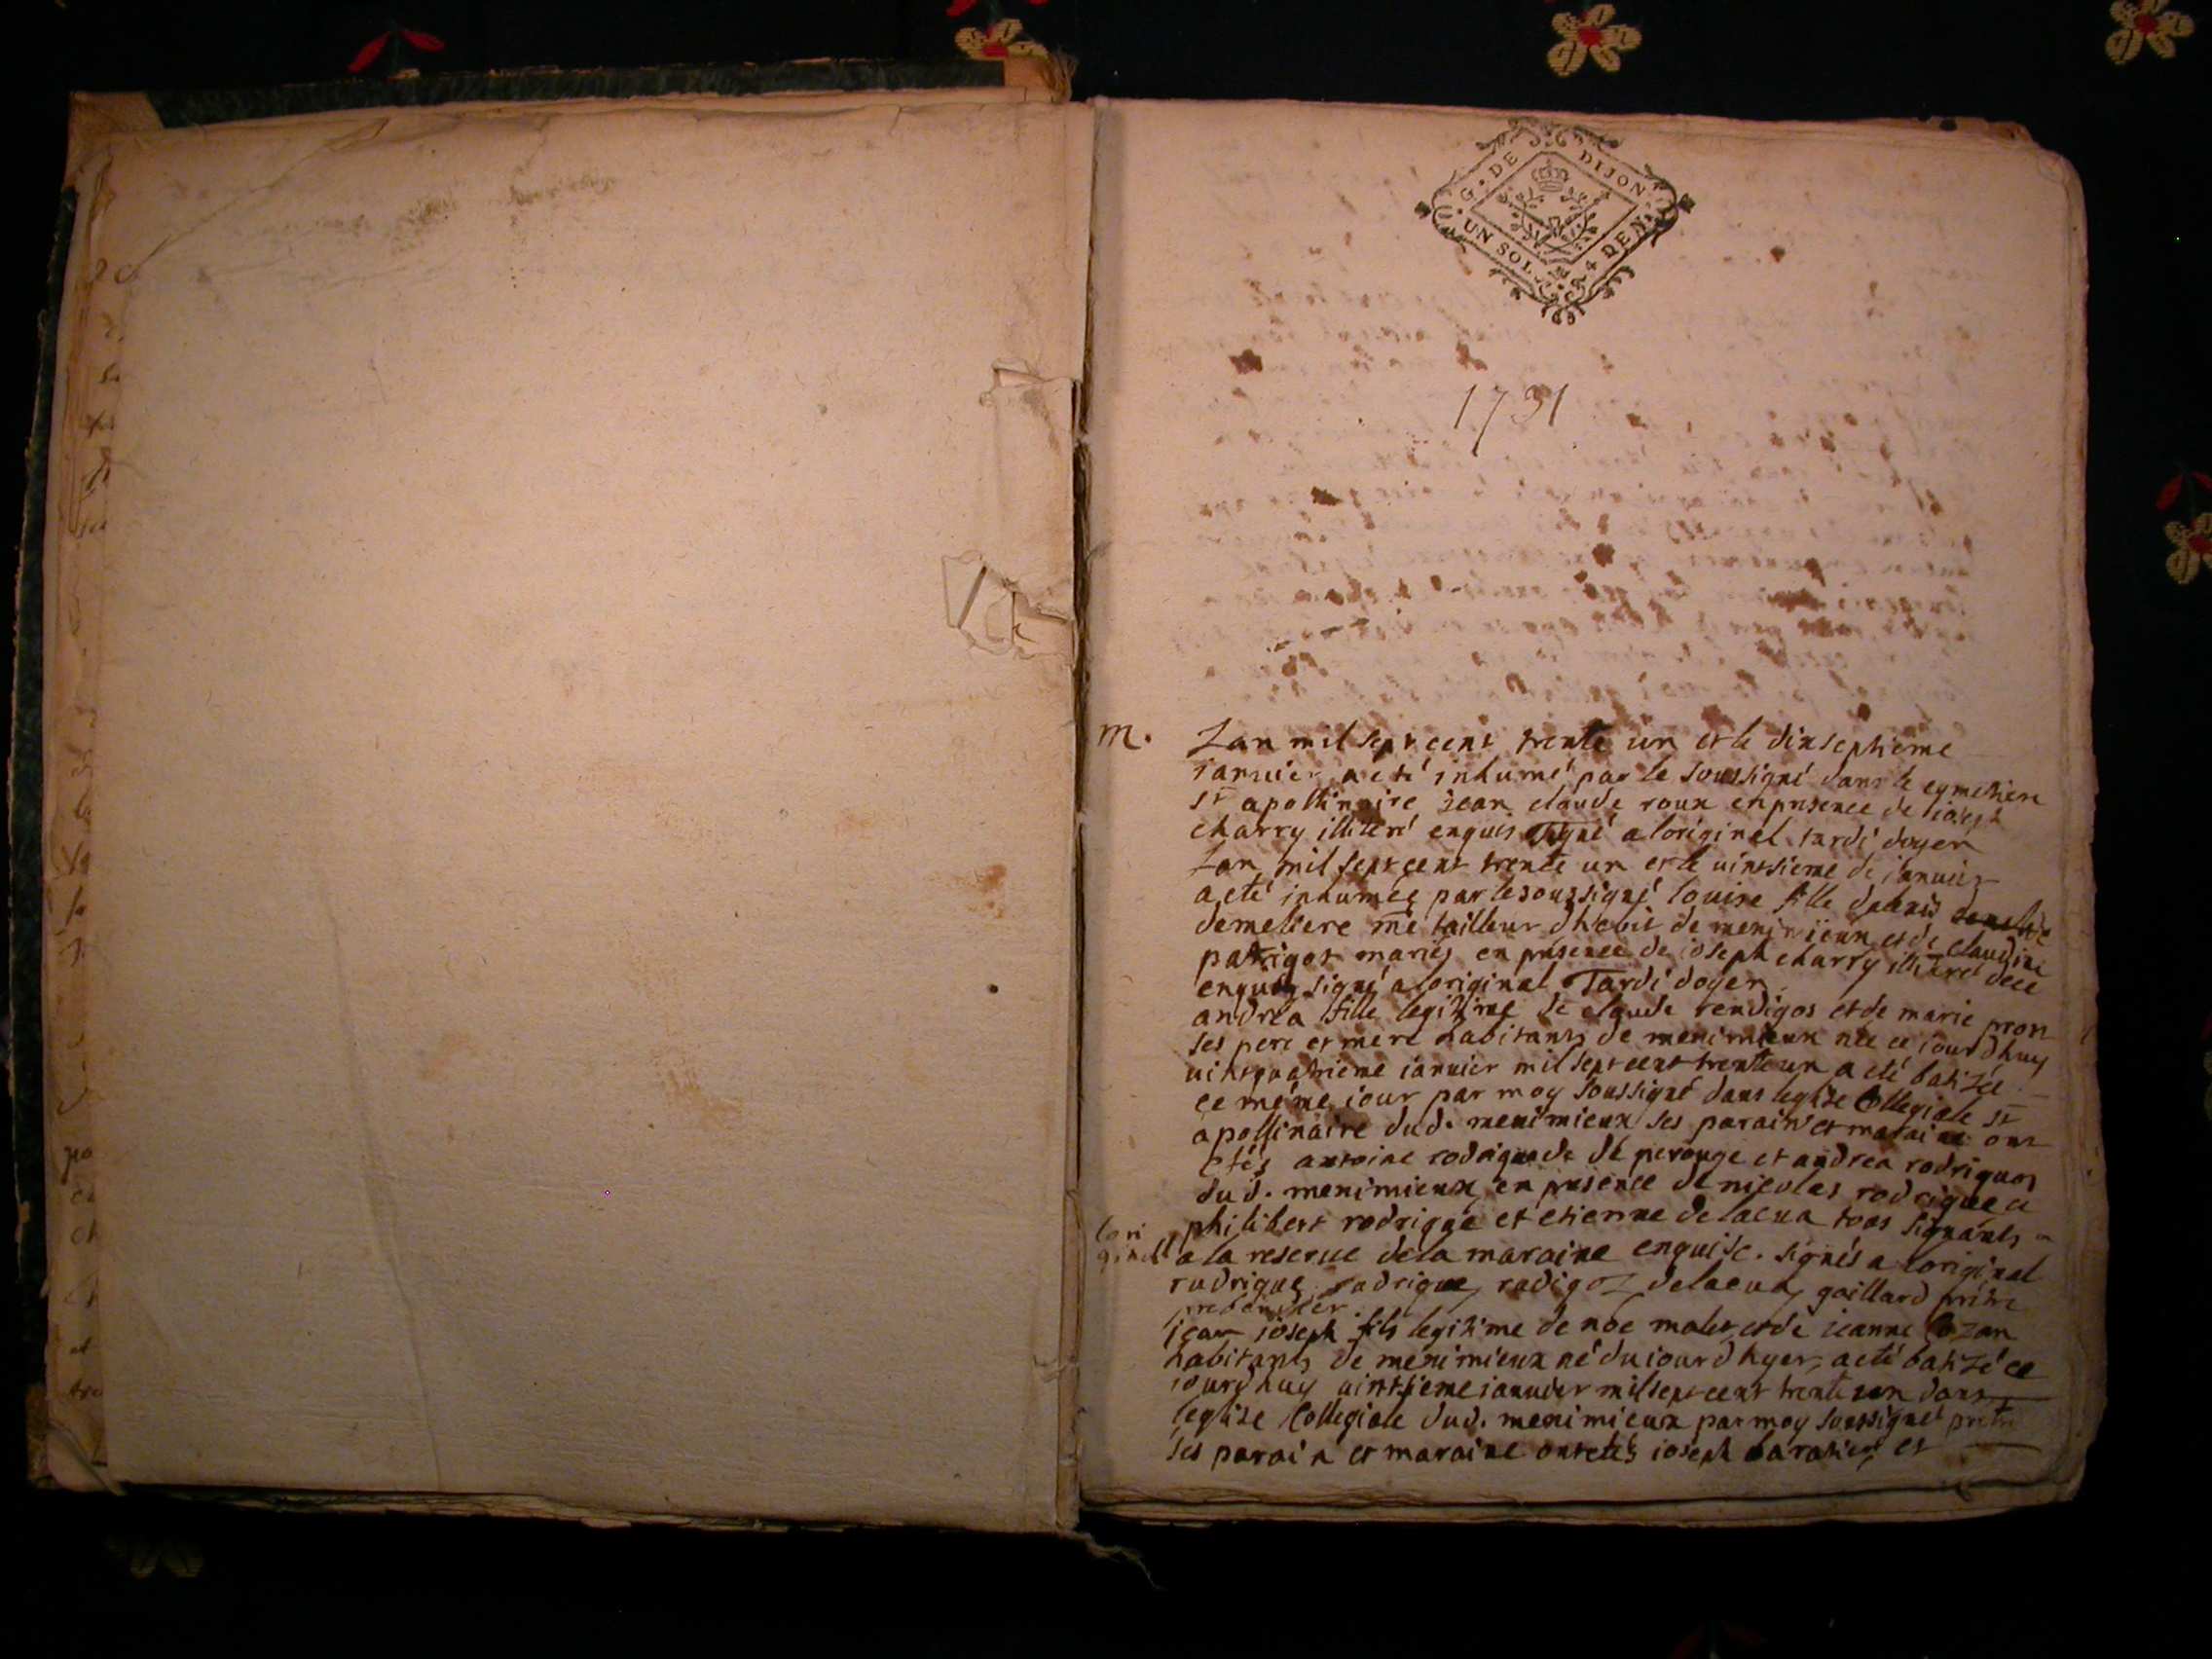 G. DE DIJON
UN SOL 4 DEN.
1731
m. Lan mil sept cent trente un et le dixseptieme
ianuier a eté inhumé par le soussigné dans le cymetiere
st apollinaire jean claude roux en presence de ioseph
charry illiteré enquis signé a loriginel tardi doyen
Lan mil sept cent trente un et le uintsieme de ianuier
a eté inhumée par le soussigné louise fille
demeliere me tailleur dhabit de meximieux et de claudine
patrigot mariés en presence de ioseph charry illiteré dece
enquis signé a loriginal Tardi doyen
andrea fille legitime de claude rendigos et de marie pron
ses pere et mere habitants de meximieux née ce iourdhuy
uintquatrieme ianuier mil sept cent trente un a eté batizée
ce même iour par moy soussigné dans leglise Collegiale st
apollinaire dud. meximieux ses parain et maraine ont
etés antoine de perouge et andrea rodriguos
dud. meximieux en presence de nicolas rodrigue
philibert rodrigue et etienne delacua tous signants
lori
ginell
a la reserue de la maraine enquise. signés a loriginal
rudrigue, rudrigue, radigoz, delacua, gaillard pretre
prebendier
jean ioseph fils legitime de noe malet et de jeanne Cozan
habitants de meximieux né du iourdhyer, a eté batizé ce
iourdhuy ianuier mil sept cent trente un dans
leglise Collegiale dud. meximieux par moy soussigné pretre
ses parain et maraine ont etés ioseph baratier et